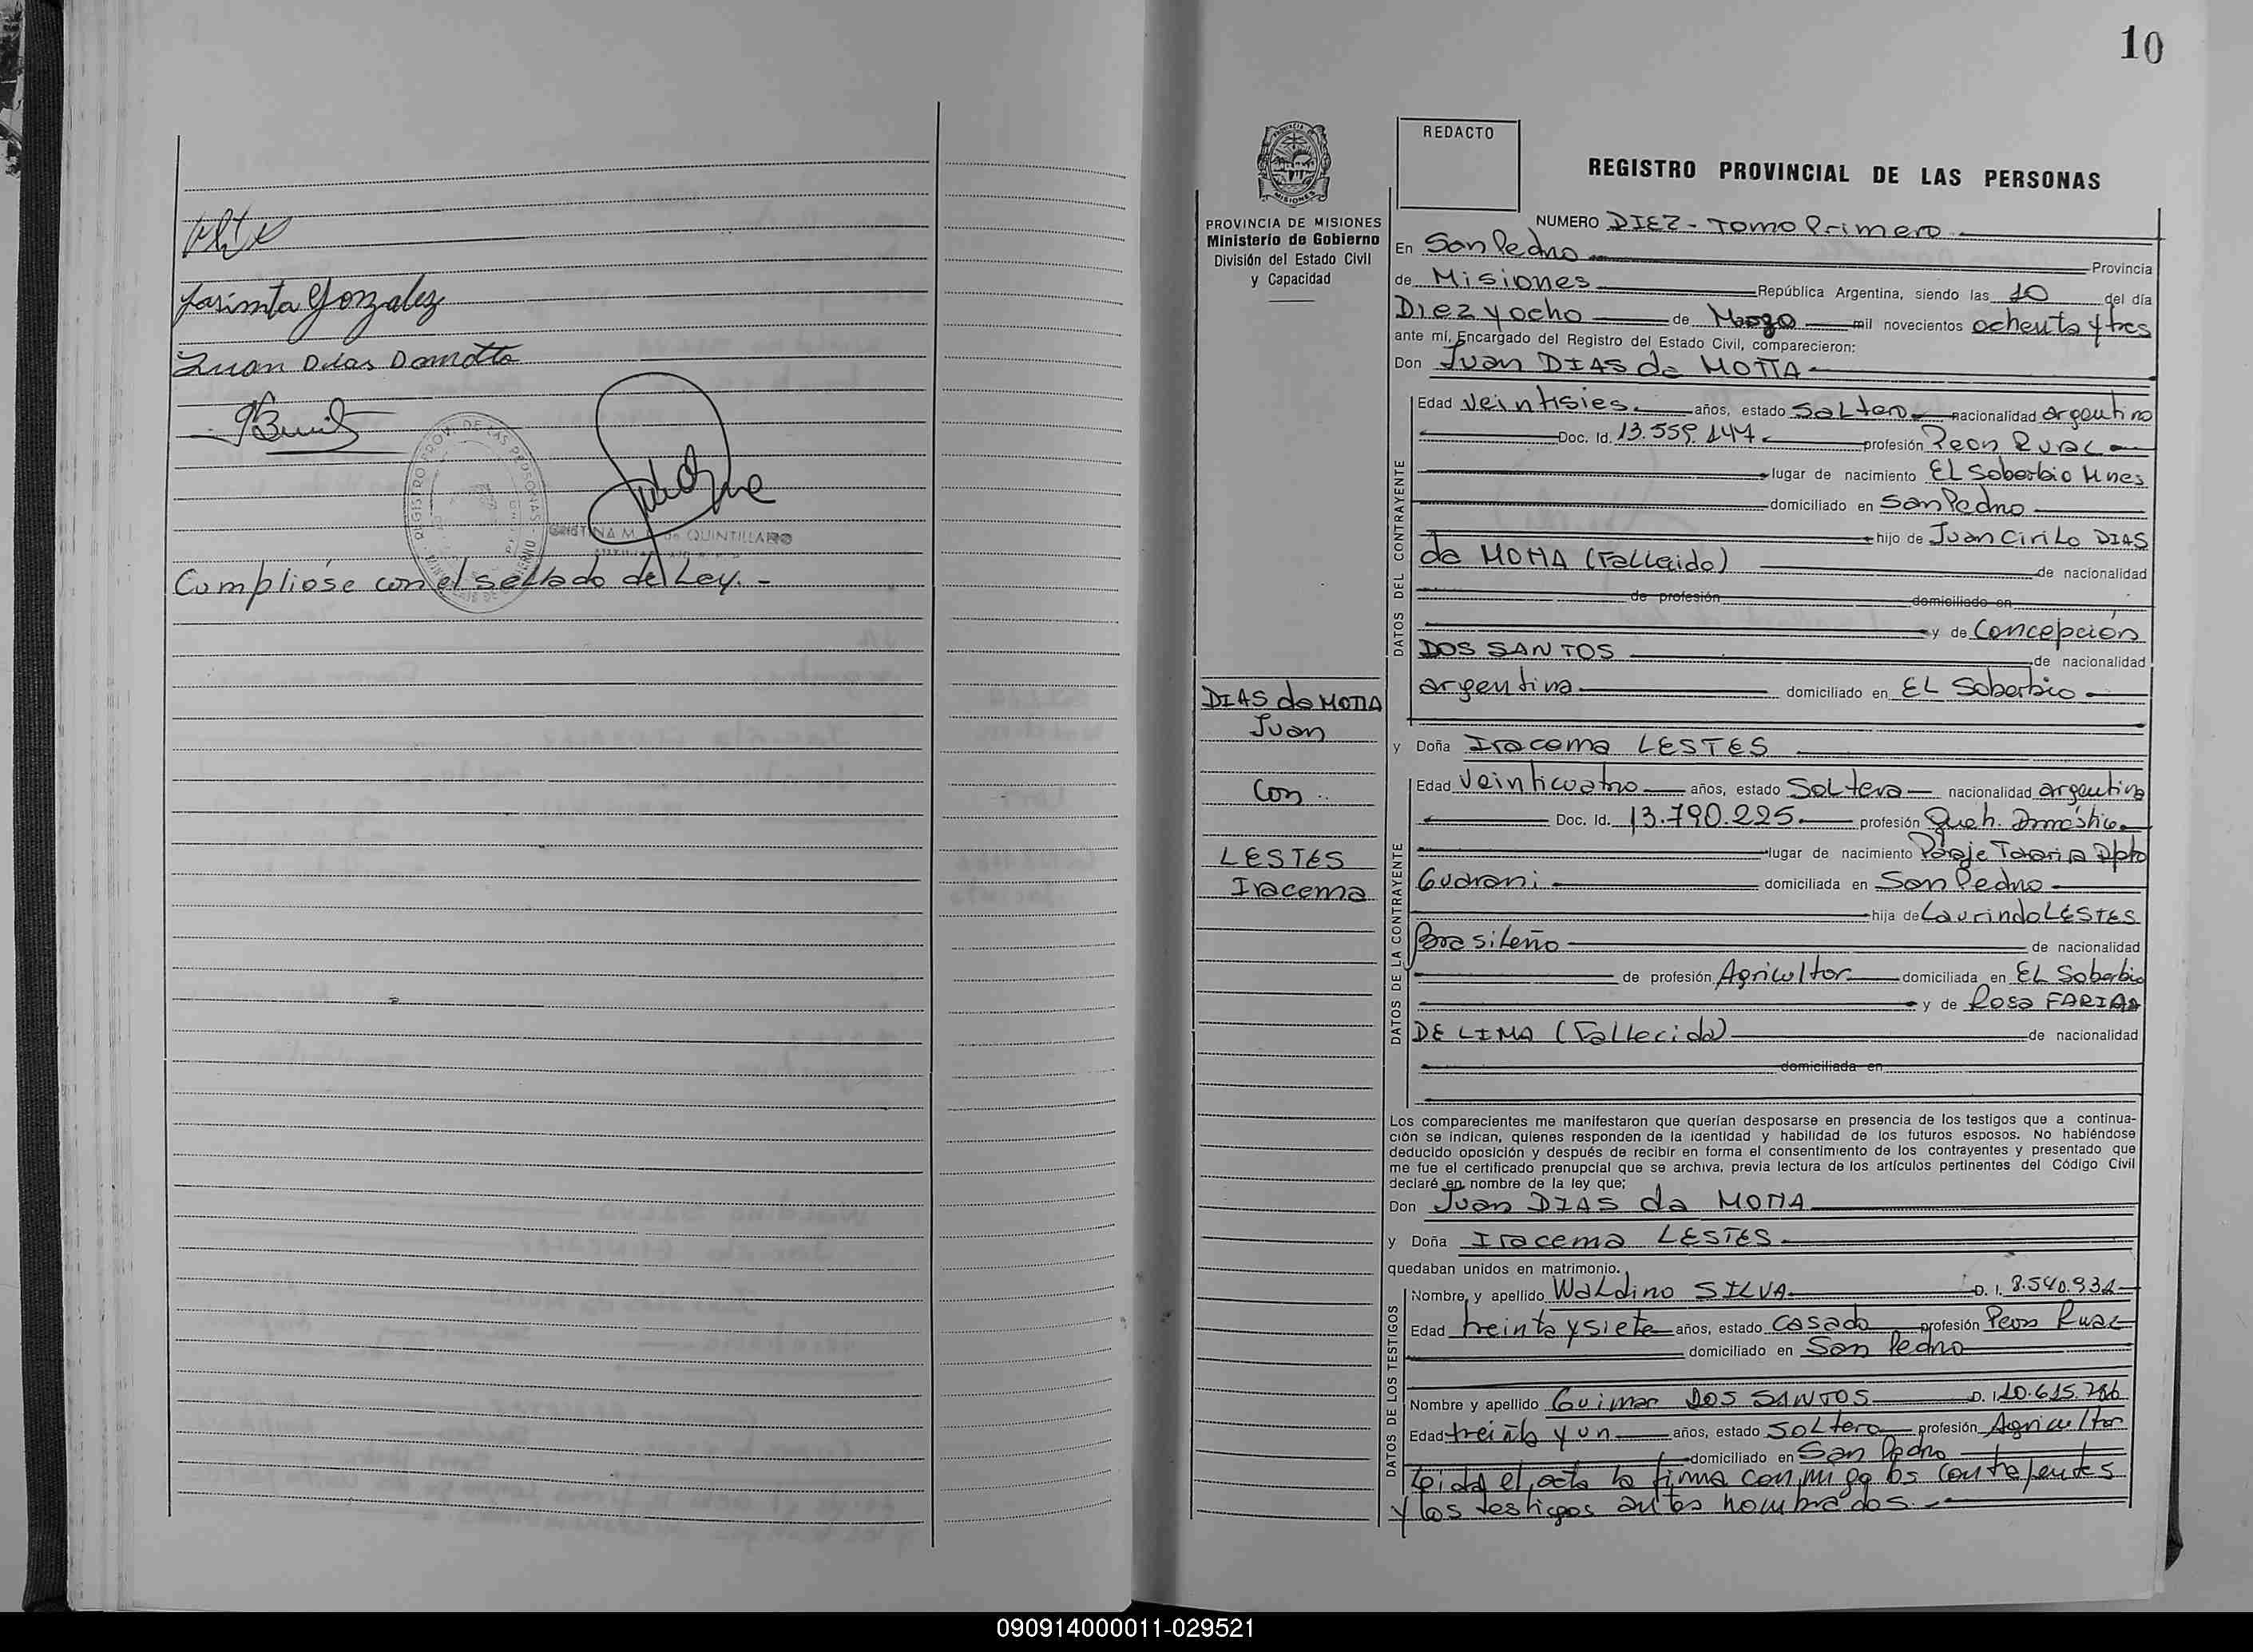 Jasinta Gonzalez
Juan Dias Damotta
REGISTRO PROV. DE LAS PERSONAS
CRISTINA M. de QUINTILLANO
Cumplióse con el sellado de Ley. -
10
REDACTO
REGISTRO PROVINCIAL DE LAS PERSONAS
PROVINCIA DE MISIONES
Ministerio de Gobierno
División del Estado Civil
y Capacidad
DIAS da MOTTA
Juan
Con
LESTES
Iracema
NUMERO DIEZ - Tomo Primero
En San Pedro Provincia
de Misiones República Argentina, siendo las 10 del día
Diez y ocho de Marzo mil novecientos ochenta y tres
ante mí, Encargado del Registro del Estado Civil, comparecieron:
Don Juan DIAS da MOTTA
DATOS DEL CONTRAYENTE
Edad veintisies años, estado Soltero nacionalidad argentino
Doc. Id. 13.559.147 profesión Peon Rural
lugar de nacimiento EL Soberbio Mnes
domiciliado en San Pedro
hijo de Juan Cirilo DIAS
da MOTTA (Fallecido) de nacionalidad
de profesión domiciliado en
y de Concepción
DOS SANTOS de nacionalidad
argentina domiciliado en EL Soberbio
y Doña Iracema LESTES
DATOS DE LA CONTRAYENTE
Edad Veinticuatro años, estado Soltera nacionalidad argentina
Doc. Id. 13.790.225 profesión Queh. Doméstico
lugar de nacimiento Paraje Dpto
Guarani domiciliada en San Pedro
hija de Laurindo LESTES
Brasileño de nacionalidad
de profesión Agricultor domiciliada en EL Soberbio
y de Rosa FARIAS
DE LIMA (Fallecida) de nacionalidad
domiciliada en
Los comparecientes me manifestaron que querían desposarse en presencia de los testigos que a continua-
ción se indican, quienes responden de la identidad y habilidad de los futuros esposos. No habiéndose
deducido oposición y después de recibir en forma el consentimiento de los contrayentes y presentado que
me fue el certificado prenupcial que se archiva, previa lectura de los artículos pertinentes del Código Civil
declaré en nombre de la ley que;
Don Juan DIAS da MOTTA
y Doña Iracema LESTES
quedaban unidos en matrimonio.
DATOS DE LOS TESTIGOS
Nombre y apellido Waldino SILVA D. I. 8.540.932
Edad treinta y siete años, estado casado profesión Peon Rural
domiciliado en San Pedro
Nombre y apellido Guimar DOS SANTOS D. I. 10.615.786
Edad treinta y un años, estado Soltero profesión Agricultor
domiciliado en San Pedro
Leida el acta la firma conmigo los contrayentes
y los testigos antes nombrados.
090914000011-029521